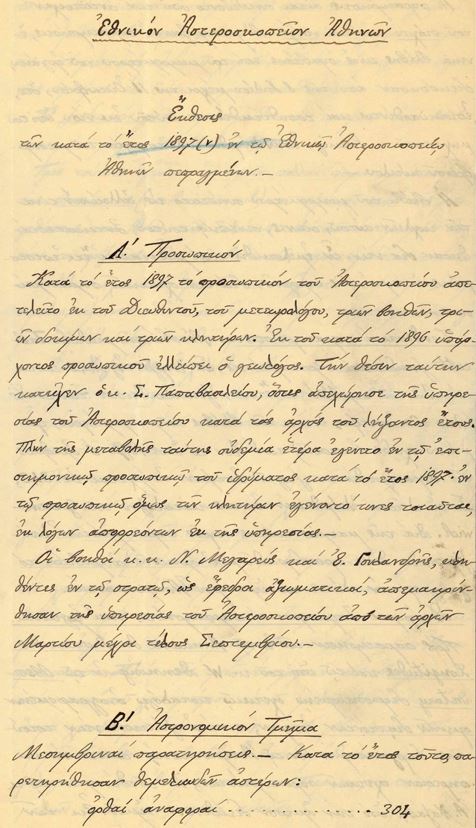 Ἐθνικόν Ἀστεροσκοπεῖον Ἀθηνῶν
Ἔκθεσις
τῶν κατὰ τὸ ἔτος 1897 (ν) ἐν τῷ Ἐθνικῷ Ἀστεροσκοπείῳ
Ἀθηνῶν πεπραγμένων.—
Α' Προσωπικόν
Κατὰ τὸ ἔτος 1897 τὸ προσωπικὸν τοῦ Ἀστεροσκοπείου ἀπε-
τελεῖτο ἐκ τοῦ Διευθυντοῦ, τοῦ μετεωρολόγου, τριῶν βοηθῶν, τρι-
ῶν δοκίμων καὶ τριῶν κλητήρων. Ἐκ τοῦ κατὰ τὸ 1896 ὑπάρ-
χοντος προσωπικοῦ ἐλλείπει ὁ γεωλόγος. Τὴν θέσιν ταύτην
κατεῖχεν ὁ κ. Σ. Παπαβασιλείου, ὅστις ἀπεχώρησε τῆς ὑπηρε-
σίας τοῦ Ἀστεροσκοπείου κατὰ τὰς ἀρχὰς τοῦ λήξαντος ἔτους.
Πλὴν τῆς μεταβολῆς ταύτης οὐδεμία ἑτέρα ἐγένετο ἐν τῷ ἐπι-
στημονικῷ προσωπικῷ τοῦ ἱδρύματος κατὰ τὸ ἔτος 1897· ἐν
τῷ προσωπικῷ ὅμως τῶν κλητήρων ἐγένοντό τινες τοιαῦται,
ἐκ λόγων ἀπορρεόντων ἐκ τῆς ὑπηρεσίας.—
Οἱ βοηθοὶ κ.κ. Ν. Μεταξᾶς καὶ Ε. Γουλανδρῆς, κλη-
θέντες ἐν τῷ στρατῷ, ὡς ἔφεδροι ἀξιωματικοί, ἀπεμακρύν-
θησαν τῆς ὑπηρεσίας τοῦ Ἀστεροσκοπείου ἀπὸ τῶν ἀρχῶν
Μαρτίου μέχρι τέλους Σεπτεμβρίου.—
Β' Ἀστρονομικὸν Τμῆμα
Μεσημβριναὶ παρατηρήσεις.— Κατὰ τὸ ἔτος τοῦτο πα-
ρετηρήθησαν θεμελιωδῶν ἀστέρων:
ὀρθαὶ ἀναφοραί ................ 304